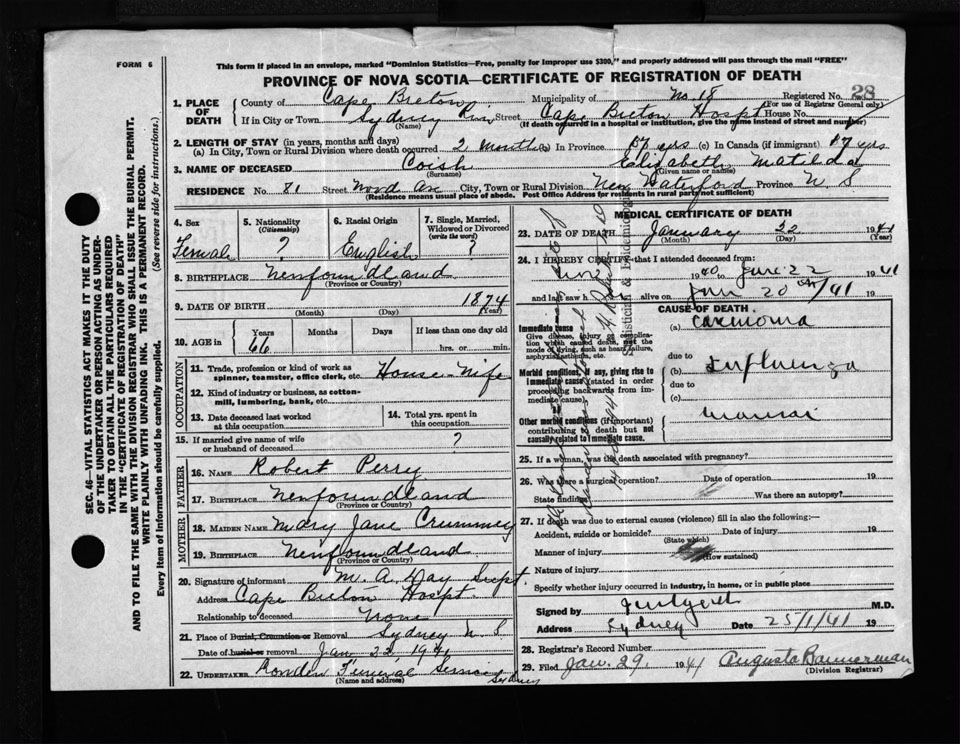 FORM 6
This form if placed in an envelope, marked "Dominion Statistics—Free, penalty for improper use $300," and properly addressed will pass through the mail "FREE"
PROVINCE OF NOVA SCOTIA—CERTIFICATE OF REGISTRATION OF DEATH
Registered No. 28
(For use of Registrar General only)
1. PLACE OF DEATH
County of Cape Breton Municipality of No 18
If in City or Town Sydney River Street Cape Breton Hospt House No.
(Name) (If death occurred in a hospital or institution, give the name instead of street and number)
2. LENGTH OF STAY (in years, months and days)
(a) In City, Town or Rural Division where death occurred 2 months (b) In Province yrs (c) In Canada (if immigrant) yrs
3. NAME OF DECEASED Coish Elizabeth Matilda
(Surname) (Given name or names)
RESIDENCE No. 81 Street Wood Ave City, Town or Rural Division New Waterford Province N S
(Residence means usual place of abode. Post Office Address for residents in rural parts not sufficient)
4. Sex
Female
5. Nationality
(Citizenship)
?
6. Racial Origin
English
7. Single, Married, Widowed or Divorced
(write the word)
?
8. BIRTHPLACE Newfoundland
(Province or Country)
9. DATE OF BIRTH 1874
(Month) (Day) (Year)
10. AGE in
Years Months Days If less than one day old
66 hrs. or min.
OCCUPATION
11. Trade, profession or kind of work as spinner, teamster, office clerk, etc. House-Wife
12. Kind of industry or business, as cotton-mill, lumbering, bank, etc.
13. Date deceased last worked at this occupation
14. Total yrs. spent in this occupation
15. If married give name of wife or husband of deceased ?
FATHER
16. NAME Robert Perry
17. BIRTHPLACE Newfoundland
(Province or Country)
MOTHER
18. MAIDEN NAME Mary Jane Crummey
19. BIRTHPLACE Newfoundland
(Province or Country)
20. Signature of informant M. A. Hay Supt.
Address Cape Breton Hospt.
Relationship to deceased None
21. Place of Burial, Cremation or Removal Sydney N S
Date of burial or removal Jan 22, 1941
22. UNDERTAKER Funeral Service Sydney
(Name and address)
MEDICAL CERTIFICATE OF DEATH
23. DATE OF DEATH January 22 1941
(Month) (Day) (Year)
24. I HEREBY CERTIFY that I attended deceased from:
1940 to 22 1941
and last saw h alive on Jan 20 /41
CAUSE OF DEATH
Immediate cause
Give disease, injury or complication which caused death, not the mode of dying, such as heart failure, asphyxia, asthenia, etc.
(a)
due to
Morbid conditions, if any, giving rise to immediate cause (stated in order proceeding backwards from immediate cause).
(b) Influenza
due to
(c)
Other morbid conditions (if important) contributing to death but not causally related to immediate cause.
25. If a woman, was the death associated with pregnancy?
26. Was there a surgical operation? Date of operation 19
State findings Was there an autopsy?
27. If death was due to external causes (violence) fill in also the following:—
Accident, suicide or homicide? Date of injury 19
(State which)
Manner of injury
(How sustained)
Nature of injury
Specify whether injury occurred in industry, in home, or in public place
Signed by M.D.
Address Sydney Date 25/1/41 19
28. Registrar's Record Number
29. Filed Jan. 29. 1941 Augusta Bannerman
(Division Registrar)
SEC. 46—VITAL STATISTICS ACT MAKES IT THE DUTY
OF THE UNDERTAKER OR PERSON ACTING AS UNDERTAKER TO OBTAIN ALL THE PARTICULARS REQUIRED
IN THE "CERTIFICATE OF REGISTRATION OF DEATH"
AND TO FILE THE SAME WITH THE DIVISION REGISTRAR WHO SHALL ISSUE THE BURIAL PERMIT.
WRITE PLAINLY WITH UNFADING INK. THIS IS A PERMANENT RECORD.
Every item of information should be carefully supplied. (See reverse side for instructions.)